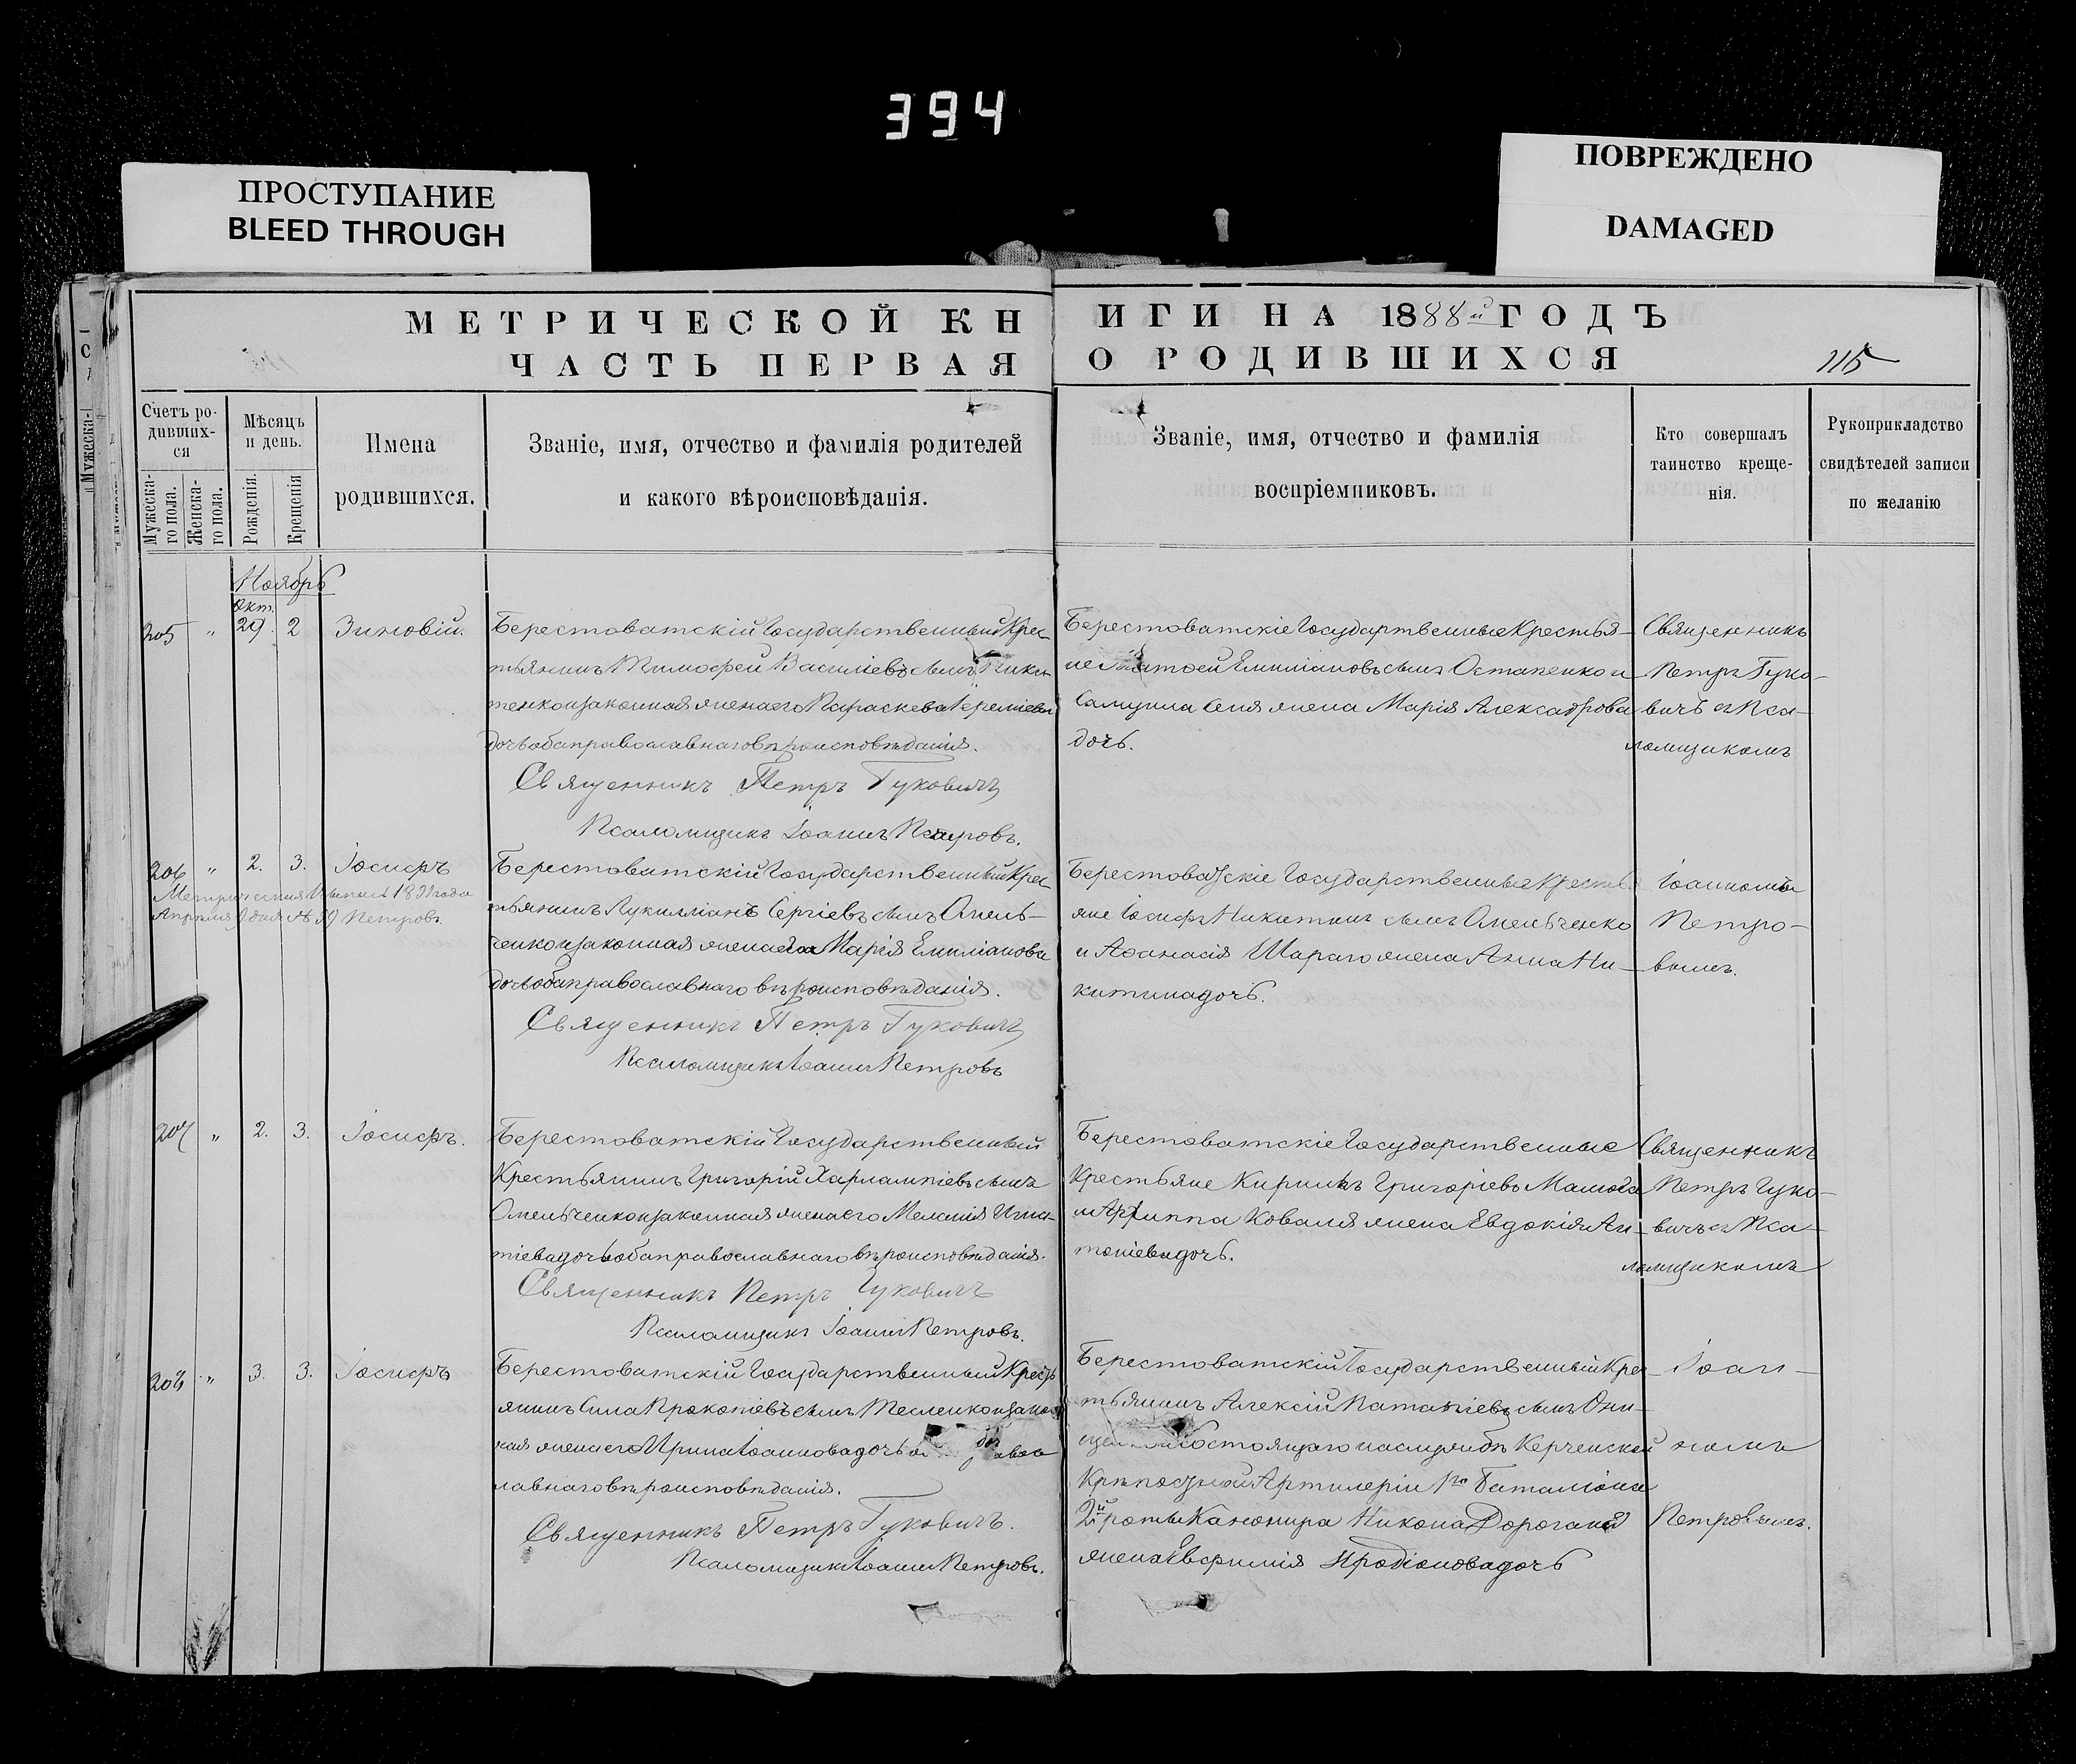 394
ПРОСТУПАНИЕ
BLEED THROUGH
ПОВРЕЖДЕНО
DAMAGED
МЕТРИЧЕСКОЙ КНИГИ НА 1888й ГОДЪ
ЧАСТЬ ПЕРВАЯ О РОДИВШИХСЯ
115
Счетъ ро-
дивших-
ся
Мужеска-
го пола.
Женска-
го пола.
Мѣсяцъ
и день.
Рожденія.
Крещенія
Имена
родившихся.
Званіе, имя, отчество и фамилія родителей
и какого вѣроисповѣданія.
Званіе, имя, отчество и фамилія
воспріемниковъ.
Кто совершалъ
таинство креще-
нія.
Рукоприкладство
свидѣтелей записи
по желанію
Ноябрь
Окт.
205 " 29. 2 Зиновій.
Берестоватскій Государственный Крес-
тьянинъ Тимофей Василіевъ сынъ
тенко и законная жена его Параскева Іереміева
дочь оба православнаго вѣроисповѣданія.
Священникъ Петръ Гуковичъ
Псаломщикъ Іоаннъ Петровъ.
Берестоватскіе Государтвенные Крестья-
не Матфей Емиліановъ сынъ Остапенко и
Самуила жена Марія Александрова
дочь.
Священникъ
Петръ Гуко-
вичъ съ Пса-
ломщикомъ
206 " 2. 3. Іосифъ
Метрическая Выпись 1891 года
Апрѣля 9 дня № 59 Петровъ.
Берестоватскій Государственный Крес-
тьянинъ Лукилліанъ Сергіевъ сынъ Омель-
ченко и законная жена его Марія Емиліанова
дочь оба православнаго вѣроисповѣданія.
Священникъ Петръ Гуковичъ
Псаломщикъ Іоаннъ Петровъ
Берестоватскіе Государственные Крестья
яне Іосифъ Никитинъ сынъ Омельченко
и Афанасія Шараго жена Анна Ни-
китина дочь.
Іоанномъ
Петро-
вымъ.
207 " 2. 3. Іосифъ.
Берестоватскій Государственный
Крестьянинъ Григорій Харлампіевъ сынъ
Омельченко и законная жена его Меланія Игна-
тіева дочь оба православнаго вѣроисповѣданія.
Священникъ Петръ Гуковичъ
Псаломщикъ Іоаннъ Петровъ.
Берестоватскіе Государственные
Крестьяне Кириллъ Григоріевъ Малюга
и Архиппа Коваля жена Евдокія Ан-
тоніева дочь.
Священникъ
Петръ Гуко-
вичъ съ Пса-
ломщикомъ
208 " 3. 3. Іосифъ
Берестоватскій Государственный Кресть
янинъ Сила Прокопіевъ сынъ Тесленко и закон
ная жена его Ирина Іоаннова дочь
лавнаго вѣроисповѣданія.
Священникъ Петръ Гуковичъ.
Псаломщикъ Іоаннъ Петровъ.
Берестоватскій Государственный Крес-
тьянинъ Алексій сынъ Они-
состоящаго на службѣ Керченской
Крѣпостной Артилеріи 1го Баталіона
2й роты Канонира Никона
жена Евфимія Иродіонова дочь
Іоан-
номъ
Петровымъ.